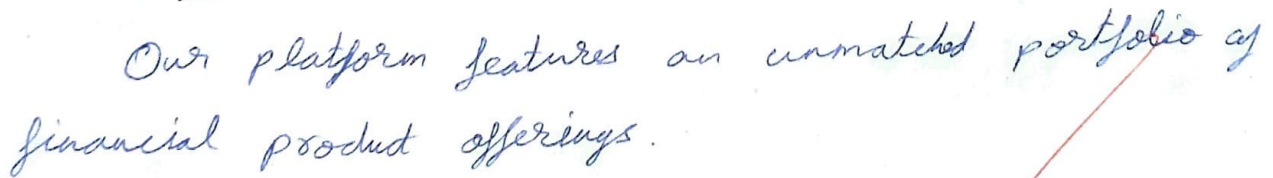 Our platform features an unmatched portfolio of
financial product offerings.